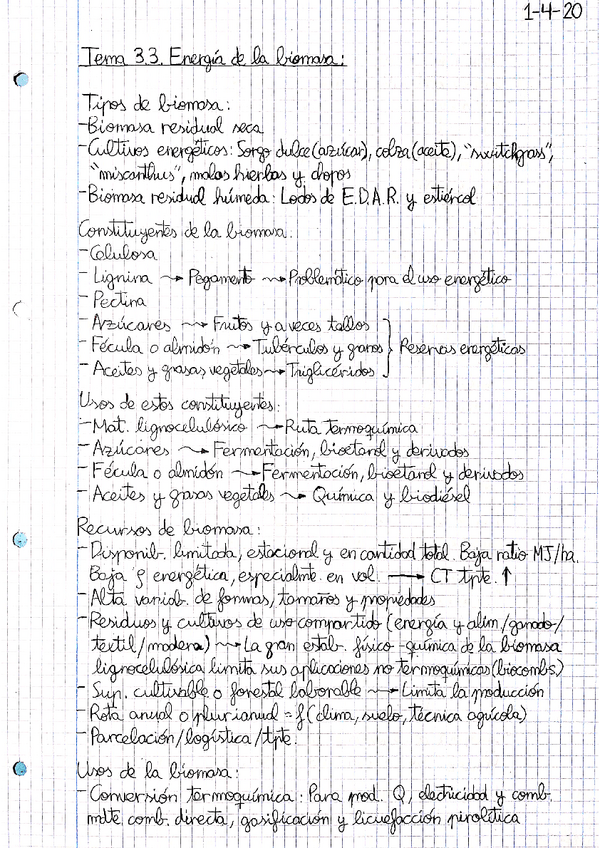 1-4-20
Tema 3.3. Energía de la biomasa:
Tipos de biomasa:
-Biomasa residual seca
-Cultivos energéticos: Sorgo dulce (azúcar), colza (aceite), "switchgrass",
"miscanthus", malas hierbas y chopos
-Biomasa residual húmeda: Lodos de E.D.A.R. y estiércol
Constituyentes de la biomasa:
-Celulosa
-Lignina → Pegamento → Problemático para el uso energético
-Pectina
-Azúcares → Frutos y a veces tallos
-Fécula o almidón → Tubérculos y granos } Reservas energéticas
-Aceites y grasas vegetales → Triglicéridos
Usos de estos constituyentes:
-Mat. lignocelulósico → Ruta termoquímica
-Azúcares → Fermentación, bioetanol y derivados
-Fécula o almidón → Fermentación, bioetanol y derivados
-Aceites y grasas vegetales → Química y biodiésel
Recursos de biomasa:
-Disponib. limitada, estacional y en cantidad total. Baja ratio MJ/ha.
Baja ρ energética, especialmte. en vol. → CT tpte. ↑
-Alta variab. de formas, tamaños y propiedades
-Residuos y cultivos de uso compartido (energía y alim./ganado/
textil/madera) → La gran estab. físico-química de la biomasa
lignocelulósica limita sus aplicaciones no termoquímicas (biocombs.)
-Sup. cultivable o forestal laborable → Limita la producción
-Rota anual o plurianual = f(clima, suelo, técnica agrícola)
-Parcelación/logística/tpte.
Usos de la biomasa:
-Conversión termoquímica: Para prod. Q, electricidad y comb.
mdte. comb. directa, gasificación y licuefacción pirolítica